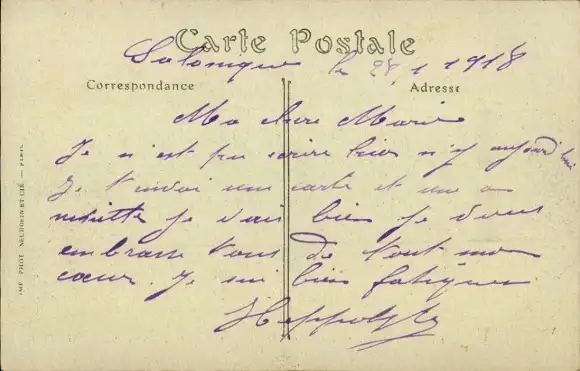 Carte Postale
Salonique le 28 1 1918
Correspondance
Adresse
Ma chere Marie
Je n'est pu ecrire hier n'y aujourd'hui
Je t'envoi une carte et une
je vais bien je vous
embrasse tous de tout mon
cœur. Je sui bien fatiguer
Heppolyte
IMP. PHOT. NEURDEIN ET CIE. — PARIS